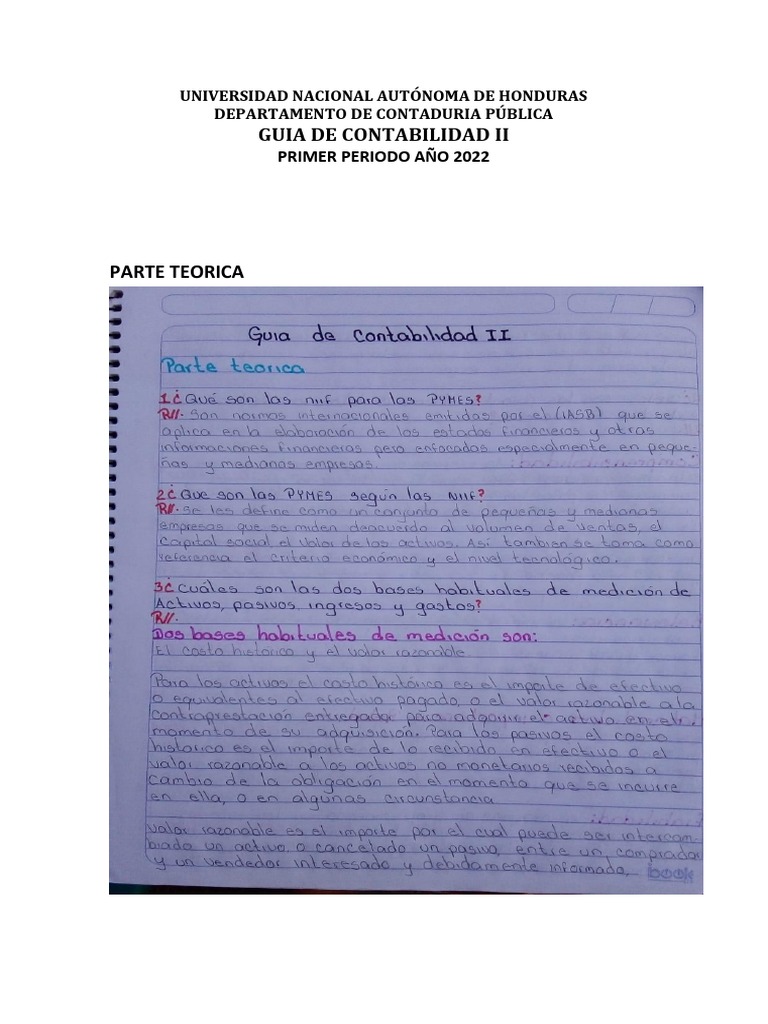 UNIVERSIDAD NACIONAL AUTÓNOMA DE HONDURAS
DEPARTAMENTO DE CONTADURIA PÚBLICA
GUIA DE CONTABILIDAD II
PRIMER PERIODO AÑO 2022
PARTE TEORICA
Guia de Contabilidad II
Parte teorica
1¿ Qué son las niif para las PYMES?
R//. Son normas internacionales emitidas por el (IASB) que se
aplica en la elaboración de los estados financieros y otras
informaciones financieras pero enfocados especialmente en peque-
ñas y medianas empresas.
2¿ Que son las PYMES según las NIIF?
R//. Se les define como un conjunto de pequeñas y medianas
empresas que se miden deacuerdo al volumen de ventas, el
capital social el valor de los activos. Así tambien se toma como
referencia el criterio económico y el nivel tecnológico.
3¿ Cuáles son las dos bases habituales de medición de
Activos, pasivos, ingresos y gastos?
R//.
Dos bases habituales de medición son:
El costo histórico y el valor razonable
Para los activos el costo histórico es el importe de efectivo
o equivalentes al efectivo pagado, o el valor razonable a la
contraprestación entregada para adquirir el activo en el
momento de su adquisición. Para los pasivos el costo
histórico es el importe de lo recibido en efectivo o el
valor razonable a los activos no monetarios recibidos a
cambio de la obligación en el momento que se incurre
en ella, o en algunas circunstancia
Valor razonable es el importe por el cual puede ser intercam-
biado un activo, o cancelado un pasivo, entre un comprador
y un vendedor interesado y debidamente informado,
book